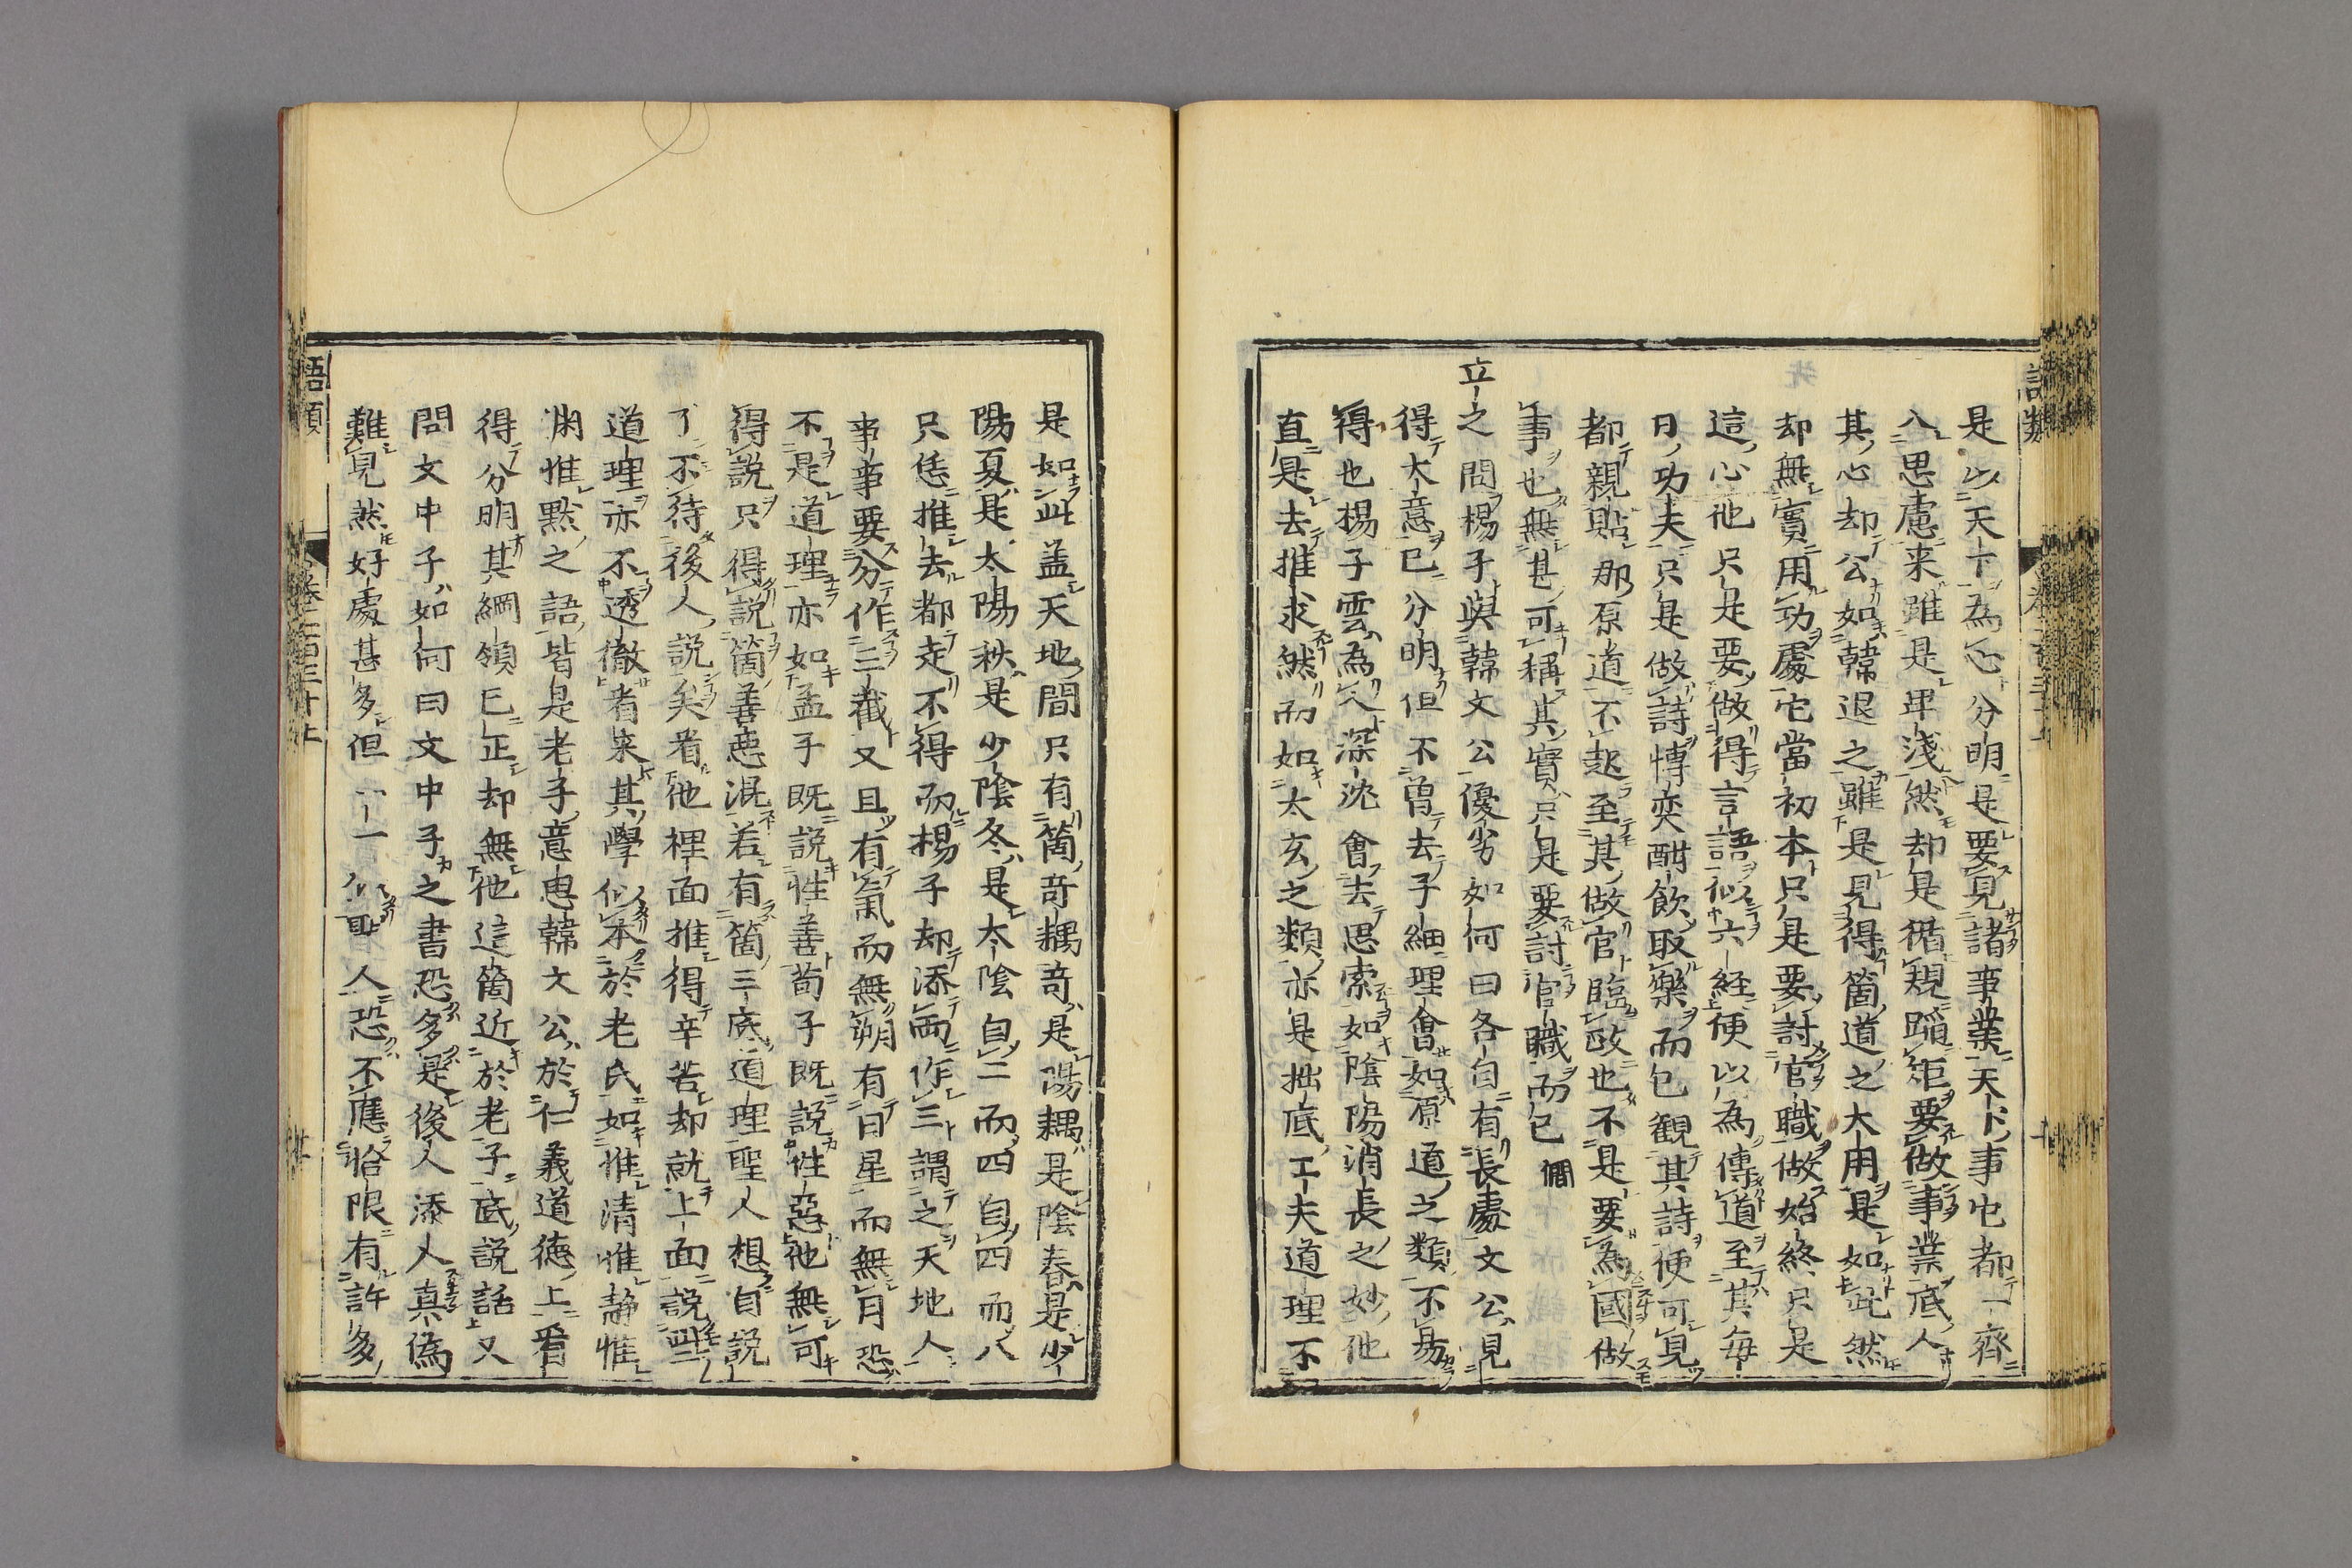 語類
是以天下為心分明是要見諸事業天下事它都一齊
入思慮来雖是卑淺然却是循規蹈矩要做事業底人
其心却公如韓退之雖是見得箇道之大用是如此然
却無實用功處它當初本只是要討官職做始終只是
這心他只是要做得言語似六経便以為傳道至其每
日功夫只是做詩博奕酣飲取樂而已観其詩便可見
都親貼那原道不起至其做官臨政也不是要為國做
事也無甚可稱其實只是要討官職而已僴
立之問楊子與韓文公優劣如何曰各自有長處文公見
得大意已分明但不曽去子細理會如原道之類不易
得也楊子雲為人深沈會去思索如陰陽消長之妙他
直是去推求然而如太玄之類亦是拙底工夫道理不
是如此盖天地間只有箇奇耦奇是陽耦是陰春是少
陽夏是太陽秋是少陰冬是太陰自二而四自四而八
只恁推去都走不得而楊子却添両作三謂之天地人
事事要分作三截又且有氣而無朔有日星而無月恐
不是道理亦如孟子既説性善荀子既説性惡他無可
得説只得説箇善惡混若有箇三底道理聖人想自説
了不待後人説矣看他裡面推得辛苦却就上面説些
道理亦不透徹看来其學似本於老氏如惟清惟静惟
淵惟黙之語皆是老子意思韓文公於仁義道徳上看
得分明其綱領已正却無他這箇近於老子底説話又
問文中子如何曰文中子之書恐多是後人添入真偽
難見然好處甚多但一一似聖人恐不應恰限有許多
語類
卷一百三十七